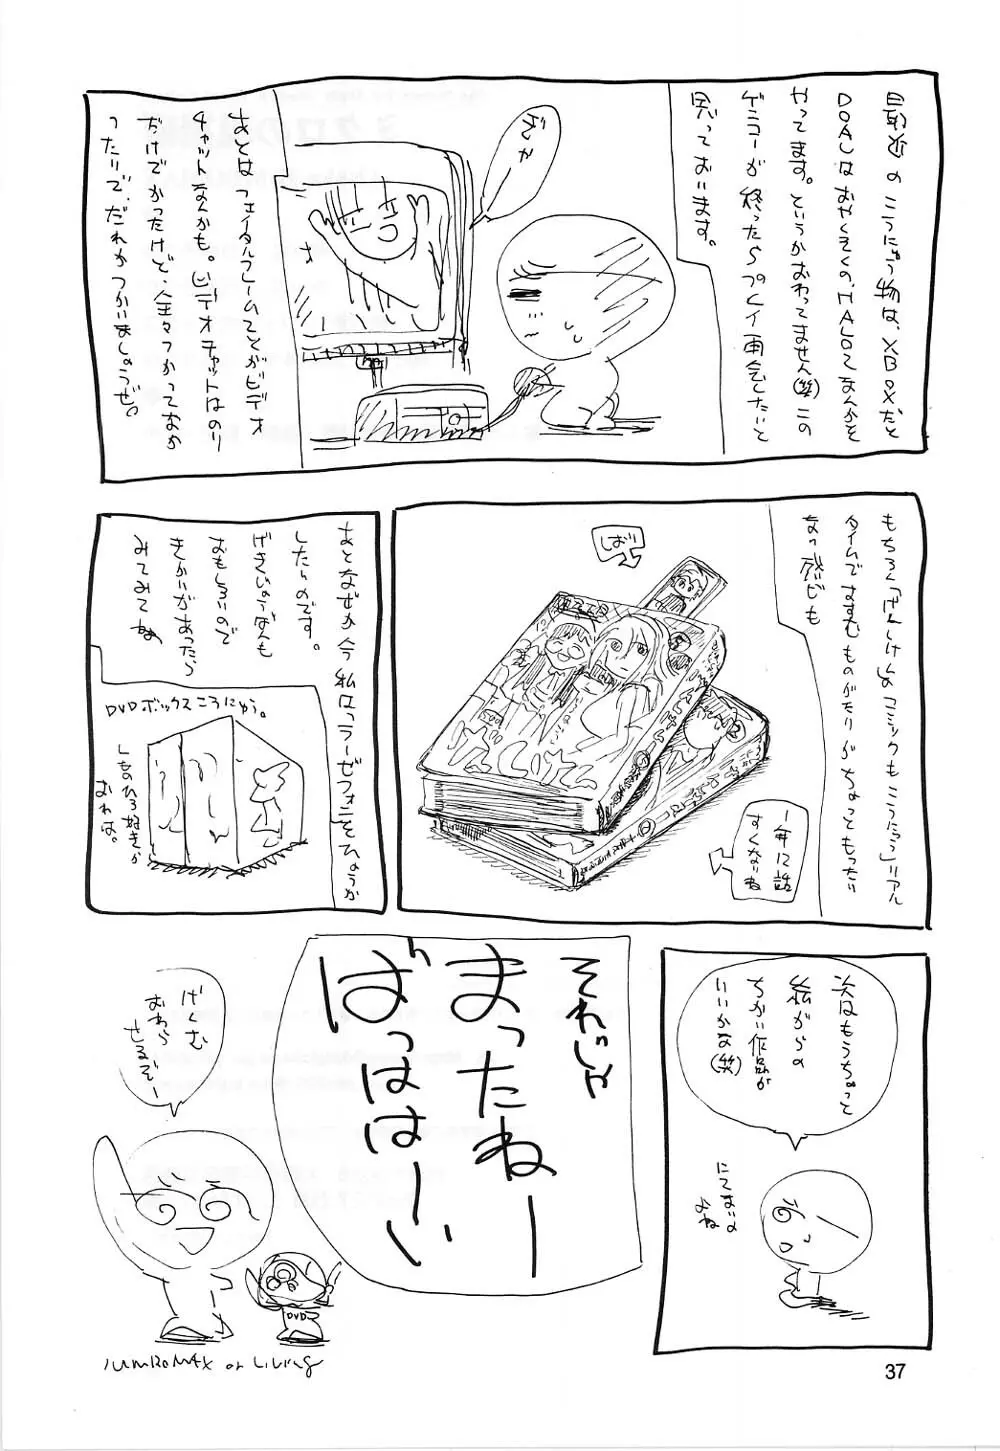 最近のこうにゅう物は、XBOXだと
DOAUはおやくそくの、HALOてなんかを
やってます。というかおわってません(笑)この
ゲンコーが終ったらプレイ再会したいと
思っております。
げんか
あとはフェイタルフレームてとかビデオ
チャットなんかも。ビデオチャットはのり
だけでかったけど、全々つかっておか
ったりで、だれかつかいましょうぜ。
もちろん「げんしけん」のコミックもこうにゅう」リアル
タイムですすむものがたりがちょっともったい
なっ感じも
しおり
1年12話
すくないね
あとなぜか今私はラーゼフォンをひょうか
したいのです。
げきじょうばんも
おもしろいので
きかいがあったら
みてみてね
DVDボックスこうにゅう。
しものひろ好きが
おれは。
次はもうちょっと
絵がらの
ちかい作品が
いいかな(笑)
にてないの
よね
それじゃ
まったねー
ばっははーい
げんむ
おわら
せるぞー
DVD
37